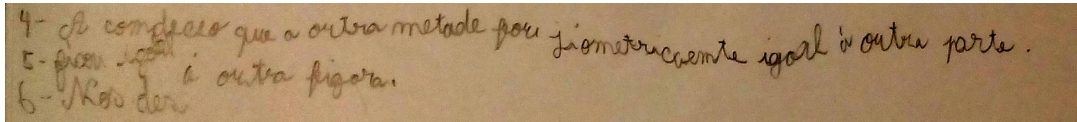 4- A comdeceo que a outra metade fou jiometricaemte igoal à outra parte.
5- ficou igoal à outra figora.
6- Nos des